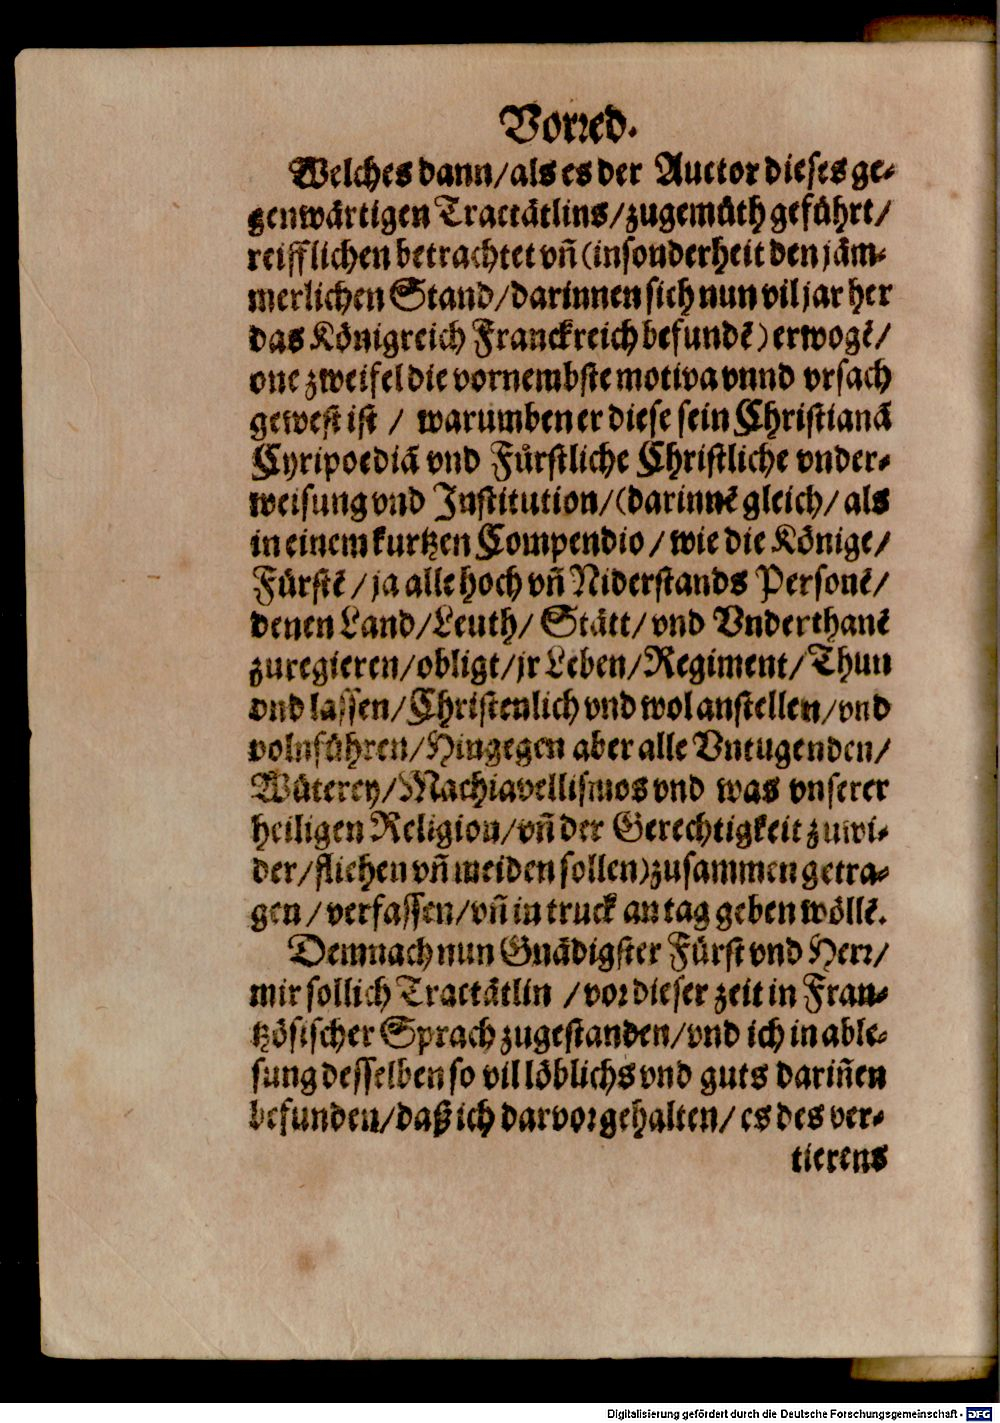 Vorꝛed.
Welches dann/als es der Auctor dieses ge-
genwärtigen Tractätlins/zugemůth gefůhrt/
reifflichen betrachtet vñ (insonderheit den jäm-
merlichen Stand/darinnen sich nun vil jar her
das Königreich Franckreich befundẽ) erwogẽ/
one zweifel die vornembste motiva vnnd vrsach
gewest ist / warumben er diese sein Christianã
Cyripoediã vnd Fürstliche Christliche vnder-
weisung vnd Institution/(darinnẽ gleich/als
in einem kurtzen Compendio/wie die Könige/
Fürstẽ/ja alle hoch vñ Niderstands Personẽ/
denen Land/Leuth/Stätt/vnd Vnderthanẽ
zuregieren/obligt/jr Leben/Regiment/Thun
vnd lassen/Christenlich vnd wol anstellen/vnd
volnführen/Hingegen aber alle Vntugenden/
Wůterey/Machiavellismos vnd was vnserer
heiligen Religion/vñ der Gerechtigkeit zuwi-
der/fliehen vñ meiden sollen)zusammen getra-
gen/verfassen/vñ in truck an tag geben wöllẽ.
Demnach nun Gnädigster Fürst vnd Herꝛ/
mir sollich Tractätlin /voꝛ dieser zeit in Fran-
tzösischer Sprach zugestanden/vnd ich in able-
sung desselben so vil löblichs vnd guts dariñen
befunden/daß ich darvoꝛ gehalten/es des ver-
tierens
Digitalisierung gefördert durch die Deutsche Forschungsgemeinschaft - DFG